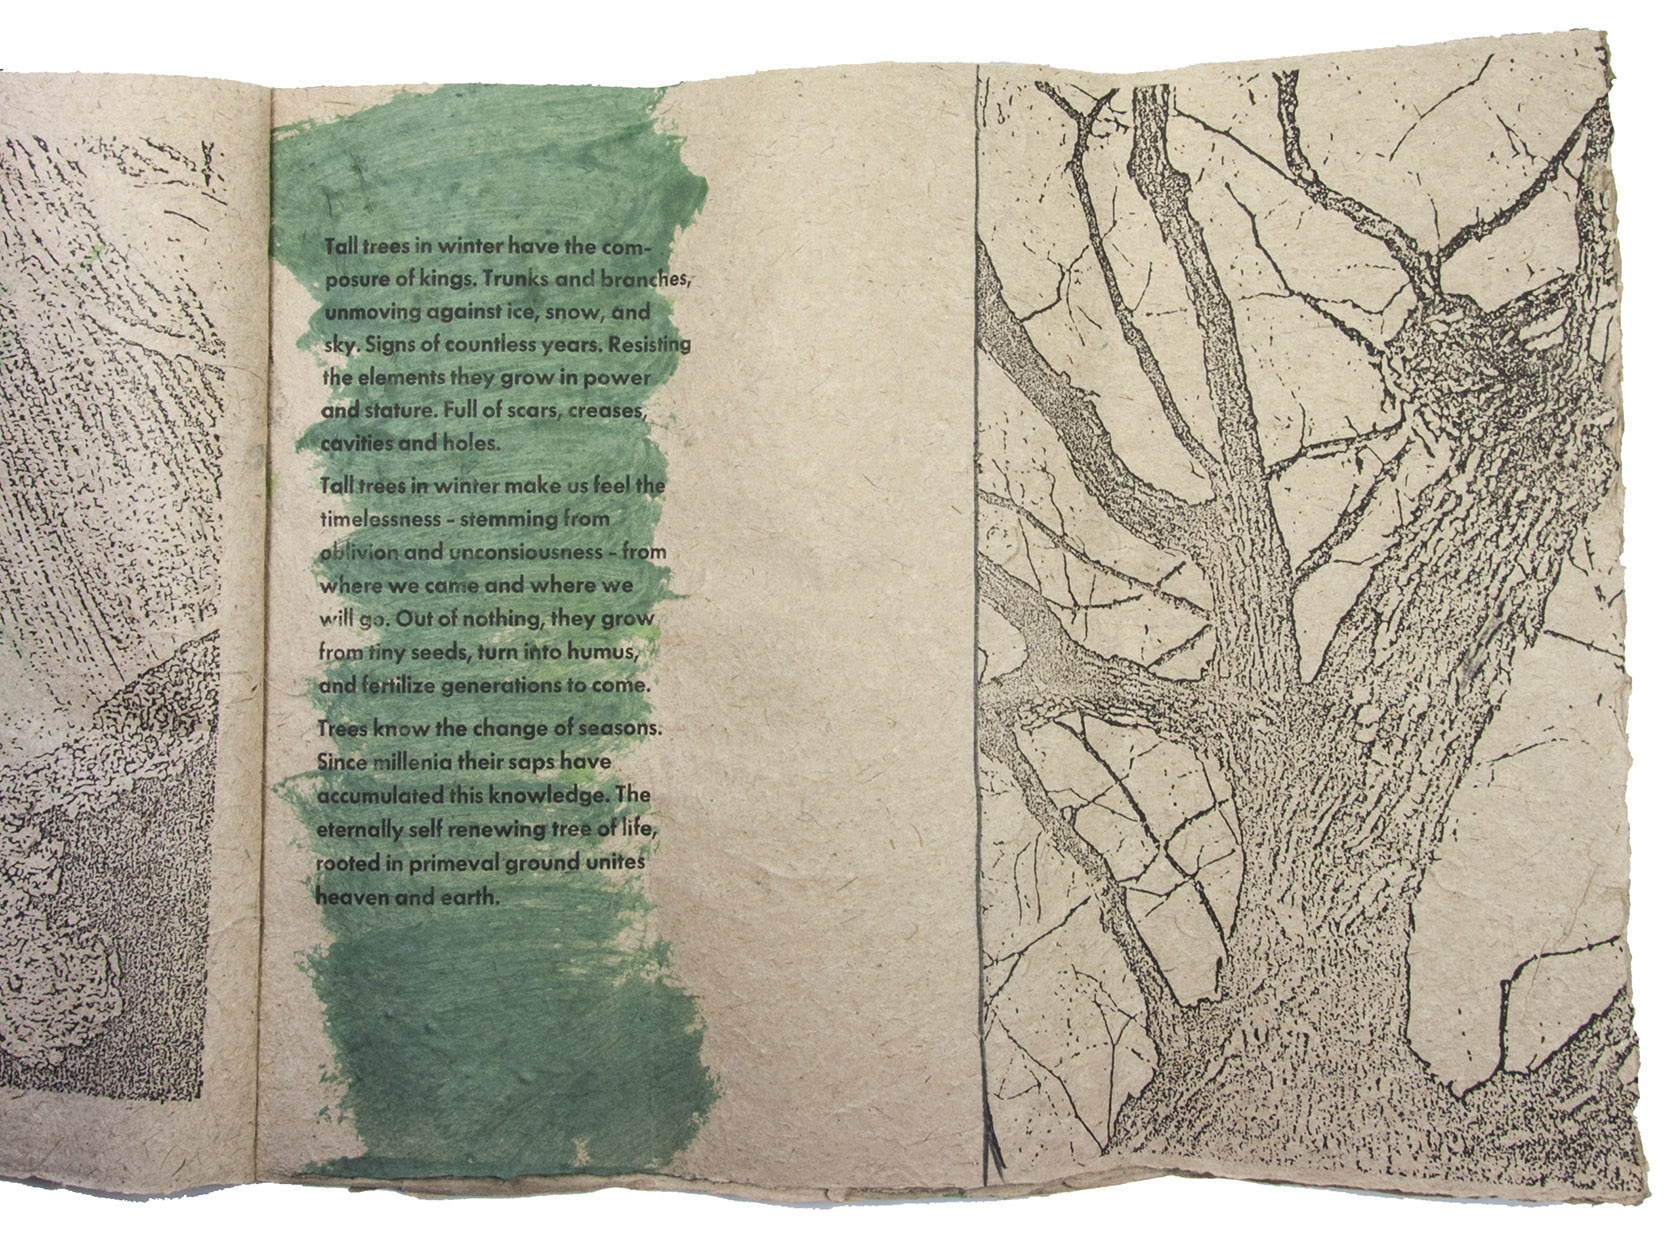 Tall trees in winter have the com-
posure of kings. Trunks and branches,
unmoving against ice, snow, and
sky. Signs of countless years. Resisting
the elements they grow in power
and stature. Full of scars, creases,
cavities and holes.
Tall trees in winter make us feel the
timelessness - stemming from
oblivion and unconsiousness - from
where we came and where we
will go. Out of nothing, they grow
from tiny seeds, turn into humus,
and fertilize generations to come.
Trees know the change of seasons.
Since millenia their saps have
accumulated this knowledge. The
eternally self renewing tree of life,
rooted in primeval ground unites
heaven and earth.